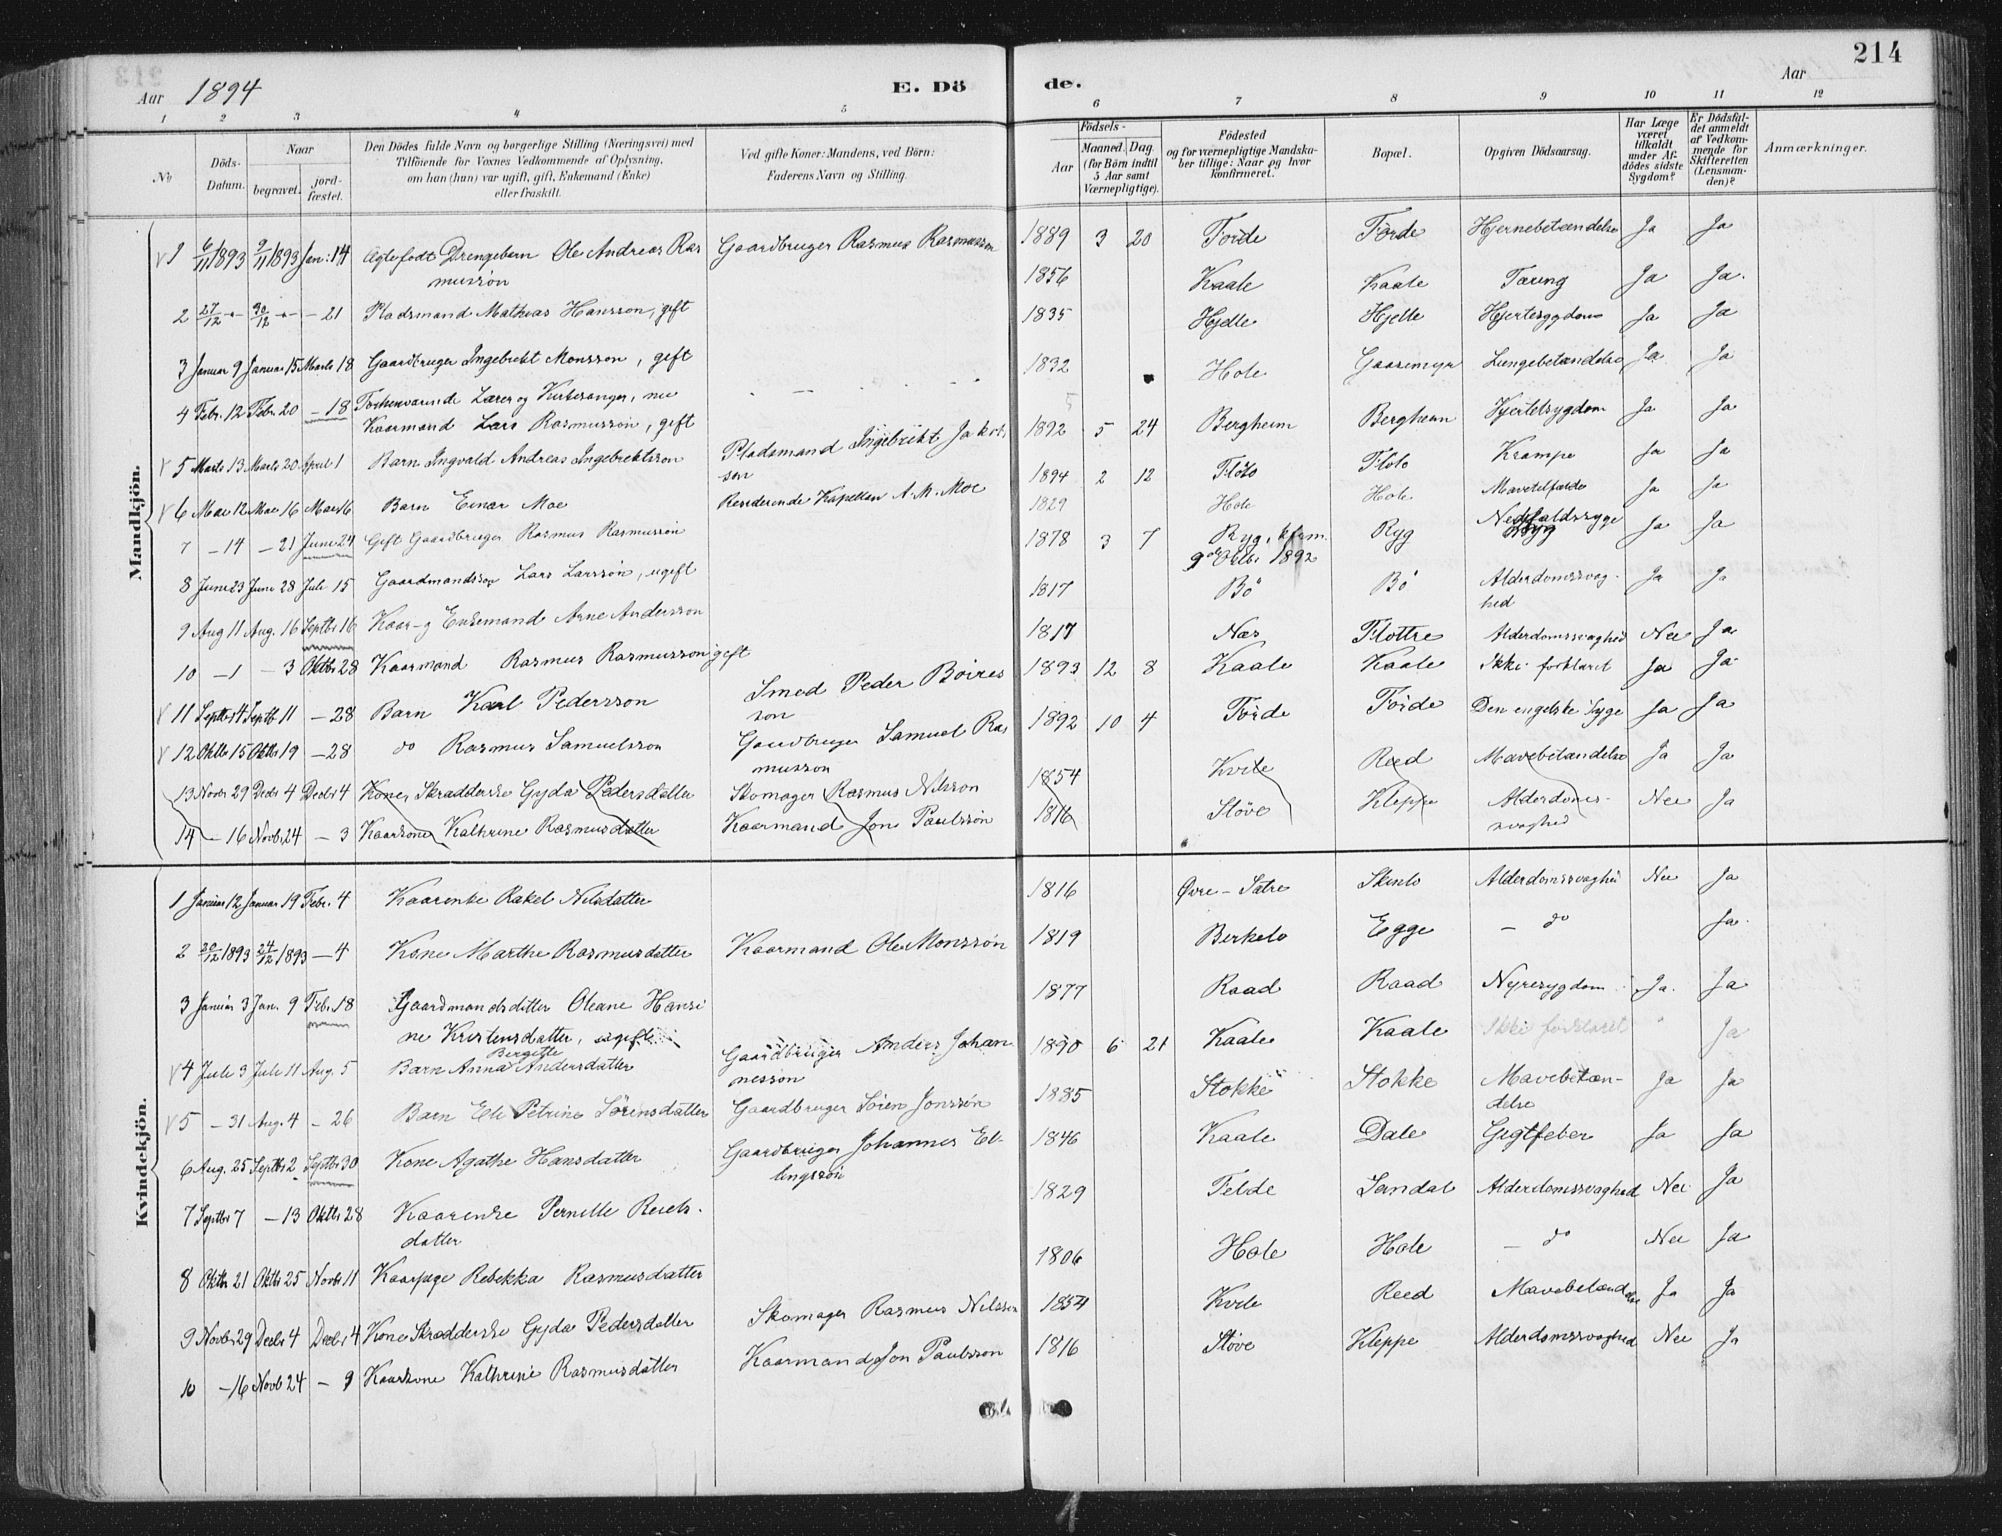 214
Aar 1894 E. Dö de. Aar
1 2 3 4 5 6 7 8 9 10 11 12
No Döds-Datum. Naar begravet. jord-fæstet. Den Dödes fulde Navn og borgerlige Stilling (Næringsvei) med Tilföiende for Voxnes Vedkommende af Oplysning, om han (hun) var ugift, gift, Enkemand (Enke) eller fraskilt. Ved gifte Koner: Mandens, ved Börn: Faderens Navn og Stilling. Födsels- Aar Maaned. Dag. (for Börn indtil 5 Aar samt Værnepligtige). Födested og for værnepligtige Mandska-ber tillige: Naar og hvor konfirmeret. Bopæl. Opgiven Dödsaarsag. Har Læge været tilkaldt under Af-dödes sidste Sygdom? Er Dödsfal-det anmeldt af Vedkom-mende for Skifteretten (Lensman-den)? Anmærkninger.
Mandkjön.
1 6/11 1893 9/11 1893 Jan: 14 Ægtefødt Drengebarn Ole Andreas Ras Gaardbruger Rasmus Rasmusson 1889 3 20 Førde Førde Hjernebetændelse Ja Ja
musson
2 27/12 30/12 - 21 Pladsmand Mathias Hansson, gift 1856 Kaale Kaale Tæring Ja Ja.
3 Januar 9 Januar 15 Marts 18 Gaardbruger Ingebrikt Monsson, gift 1835 Hjelle Hjelle Hjertesygdom Ja Ja
4 Febr. 12 Febr. 20 - 18 Forhenværende Lærer og Kirkesanger, nu 1832 Hole Lungebetændelse Ja Ja
Kaarmand Lars Rasmusson, gift
5 Marts 13 Marts 20 April 1 Barn Ingvald Andreas Ingebriktsson Pladsmand Ingebrikt Jakobs 1892 5 24 Bergheim Bergheim Hjertesygdom Ja Ja
son
6 Mai 12 Mai 16 Mai 16 Barn Einar Moe Residerende Kapellan A. M. Moe 1894 2 12 Flölo Flölo Krampe Ja Ja
7 - 14 - 21 Juni 24 Gift Gaardbruger Rasmus Rasmusson 1829 Hole Hole Mavetilfælde Ja Ja
8 Juni 23 Juni 28 Juli 15 Gaardmandssøn Lars Larsson, ugift 1878 3 7 Ryg, kfrm. Ryg Nedfaldssyge Ja Ja
9de Oktbr 1892
9 Aug 11 Aug. 16 Septbr 16 Kaar- og Enkemand Arne Andersson 1817 Bö Bö Alderdomssvag- Ja Ja
hed
10 - 1 - 3 Oktbr 28 Kaarmand Rasmus Rasmusson gift 1817 Nas Flottre Alderdomssvaghed Nei Ja
11 Septbr 4 Septb 11 - 28 Barn Karl Pedersson Smed Peder Böires 1893 12 8 Kaale Kaale Ikke forklaret Ja Ja
son
12 Oktbr 15 Oktbr 19 - 28 do Rasmus Samuelsson Gaardbruger Samuel Ras 1892 10 4 Förde Förde Den engelske Syge Ja Ja
musson
13 Novbr 29 Decbr 4 Decbr 4 Kone, Skrædderske Gyda Pedersdatter Skomager Rasmus Nilsson 1854 Kvile Reed Mavebetændelse Ja Ja
14 - 16 Novbr 24 - 3 Kaarkone Kathrine Rasmusdatter Kaarmand Jon Paulsson 1816 Stöve Kleppe Alderdoms- Nei Ja
svaghed
Kvindekjön.
1 Januar 12 Januar 19 Febr. 4 Kaarenke Rakel Nilsdatter 1816 Øvre-Sætre Skinlo Alderdomssvaghed Nei Ja
2 20/12 1893 24/12 1893 - 4 Kone Marthe Rasmusdatter Kaarmand Ole Monsson 1819 Berkelo Egge - do Ja.
3 Januar 3 Jan. 9 Febr. 18 Gaardmandsdatter Oleane Hansi 1877 Raad Raad Nyresygdom Ja. Ja
ne Kristensdatter, ugift
Bergitte
4 Juli 3 Juli 11 Aug. 5 Barn Anna Andersdatter Gaardbruger Anders Johan 1890 6 21 Kaale Kaale Ikke forklaret Ja
nesson
5 - 31 Aug. 4 - 26 Barn Eli Petrine Sörensdatter Gaardbruger Sören Jonsson 1885 Stokke Stokke Mavebetæn- Ja Ja
delse
6 Aug. 25 Septbr 2 Septbr 30 Kone Agathe Hansdatter Gaardbruger Johannes El- 1846 Kaale Dale Gigtfeber Ja Ja
lingsson
7 Septbr 7 - 13 Oktbr 28 Kaarenke Pernille Reiels- 1829 Felde Sandal Alderdomssvaghed Nei Ja
datter
8 Oktbr 21 Oktbr 25 Novbr 11 Kaarpige Rebekka Rasmusdatter 1806 Hole Hole - do Nei Ja
9 Novbr 29 Decbr 4 Decbr 4 Kone Skrædderske Gyda Pedersdatter Skomager Rasmus Nilsson 1854 Kvile Reed Mavebetændelse Ja Ja
10 - 16 Novb 24 - 9 Kaarkone Kathrine Rasmusdatter Kaarmand Jon Paulsson 1816 Stöve Kleppe Alderdomssvaghed Nei Ja